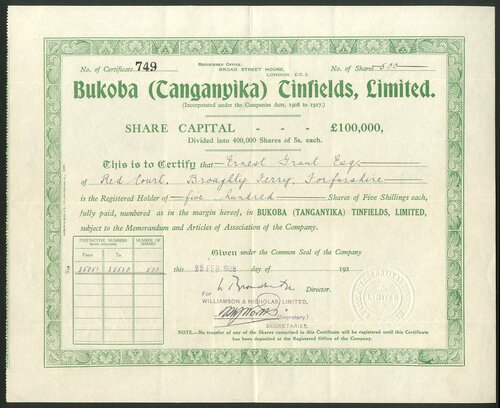 No. of Certificate 749
REGISTERED OFFICE:
BROAD STREET HOUSE,
LONDON, E.C.2.
No. of Shares 500
Bukoba (Tanganyika) Tinfields, Limited.
(Incorporated under the Companies Acts, 1908 to 1917.)
SHARE CAPITAL - - - £100,000,
Divided into 400,000 Shares of 5s. each.
This is to Certify that Ernest Grant Esq.
of Red Court, Broughty Ferry, Forfarshire
is the Registered Holder of five hundred Shares of Five Shillings each,
fully paid, numbered as in the margin hereof, in BUKOBA (TANGANYIKA) TINFIELDS, LIMITED,
subject to the Memorandum and Articles of Association of the Company.
DISTINCTIVE NUMBERS
NUMBER OF SHARES
From To
35051 35550 500
Given under the Common Seal of the Company
this 25 FEB 1928 day of 192
Director.
For WILLIAMSON & NICHOLAS, LIMITED,
(Secretary.)
SECRETARIES.
NOTE.—No transfer of any of the Shares comprised in this Certificate will be registered until this Certificate
has been deposited at the Registered Office of the Company.